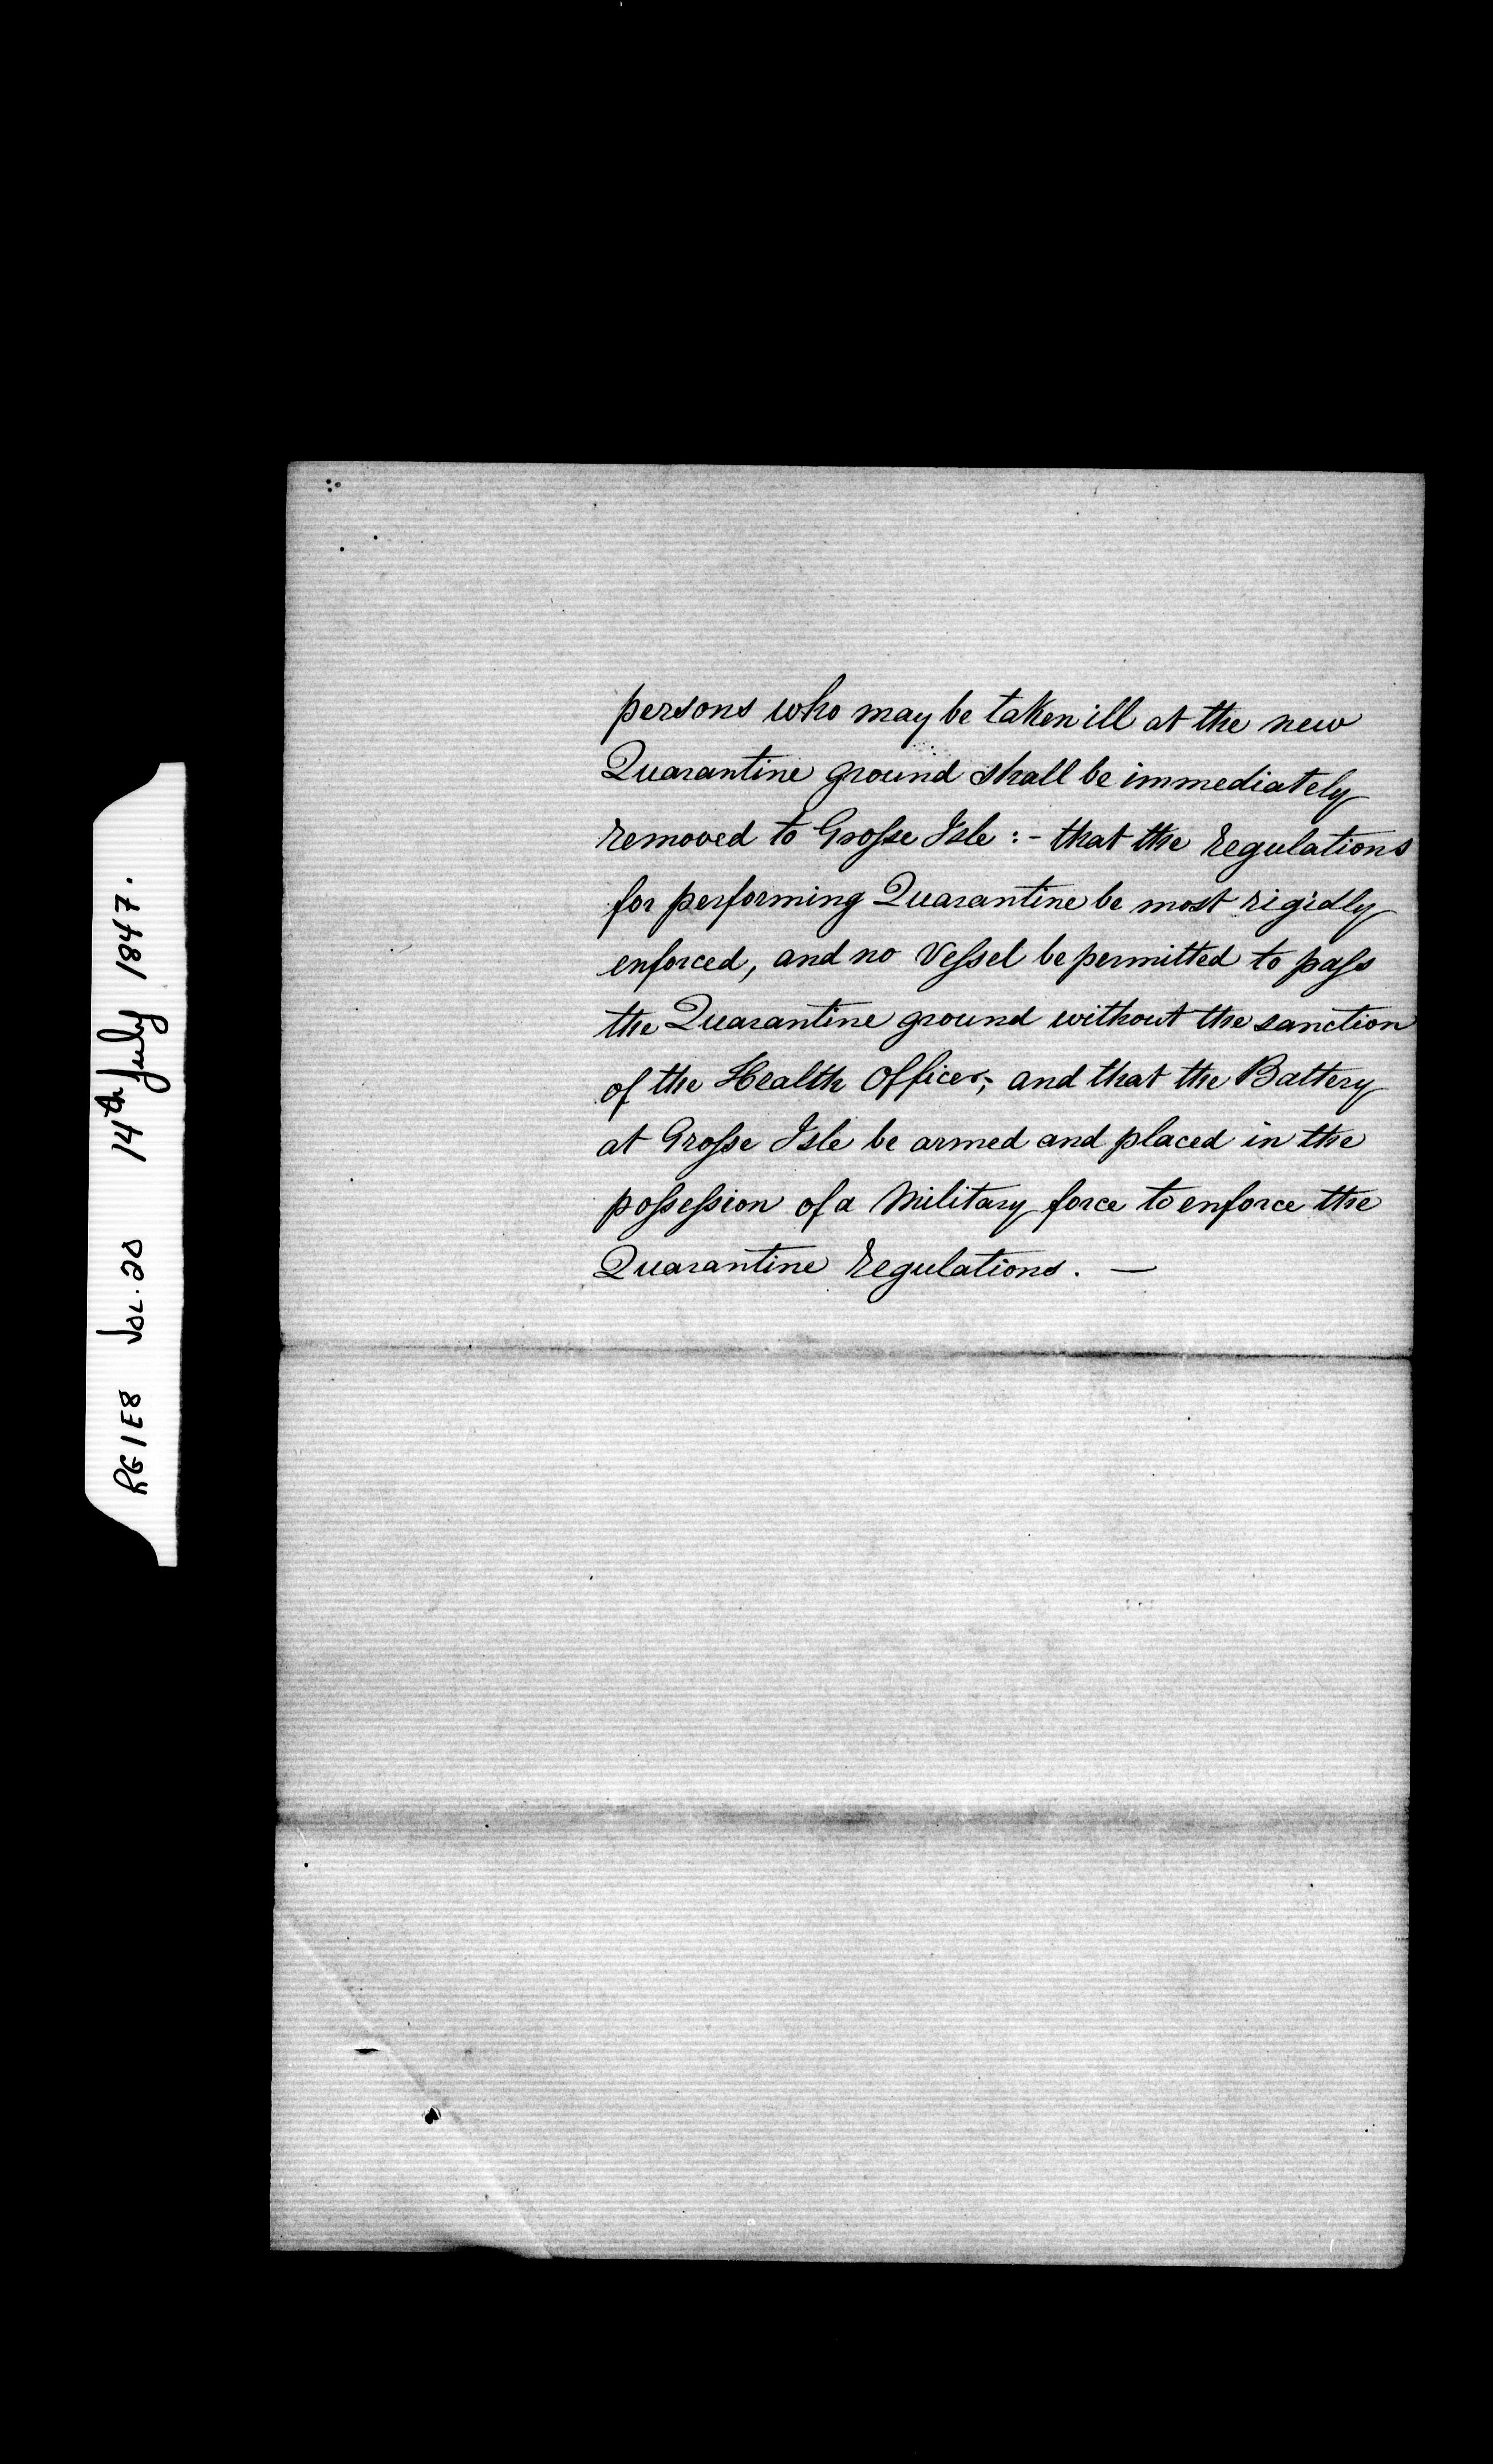 persons who may be taken ill at the new
Quarantine ground shall be immediately
removed to Grosse Isle :- that the Regulations
for performing Quarantine be most rigidly
enforced, and no Vessel be permitted to pass
the Quarantine ground without the sanction
of the Health Officer; and that the Battery
at Grosse Isle be armed and placed in the
possession of a Military force to enforce the
Quarantine Regulations. —
RG 1 E8 VOL. 20 14th July 1847.